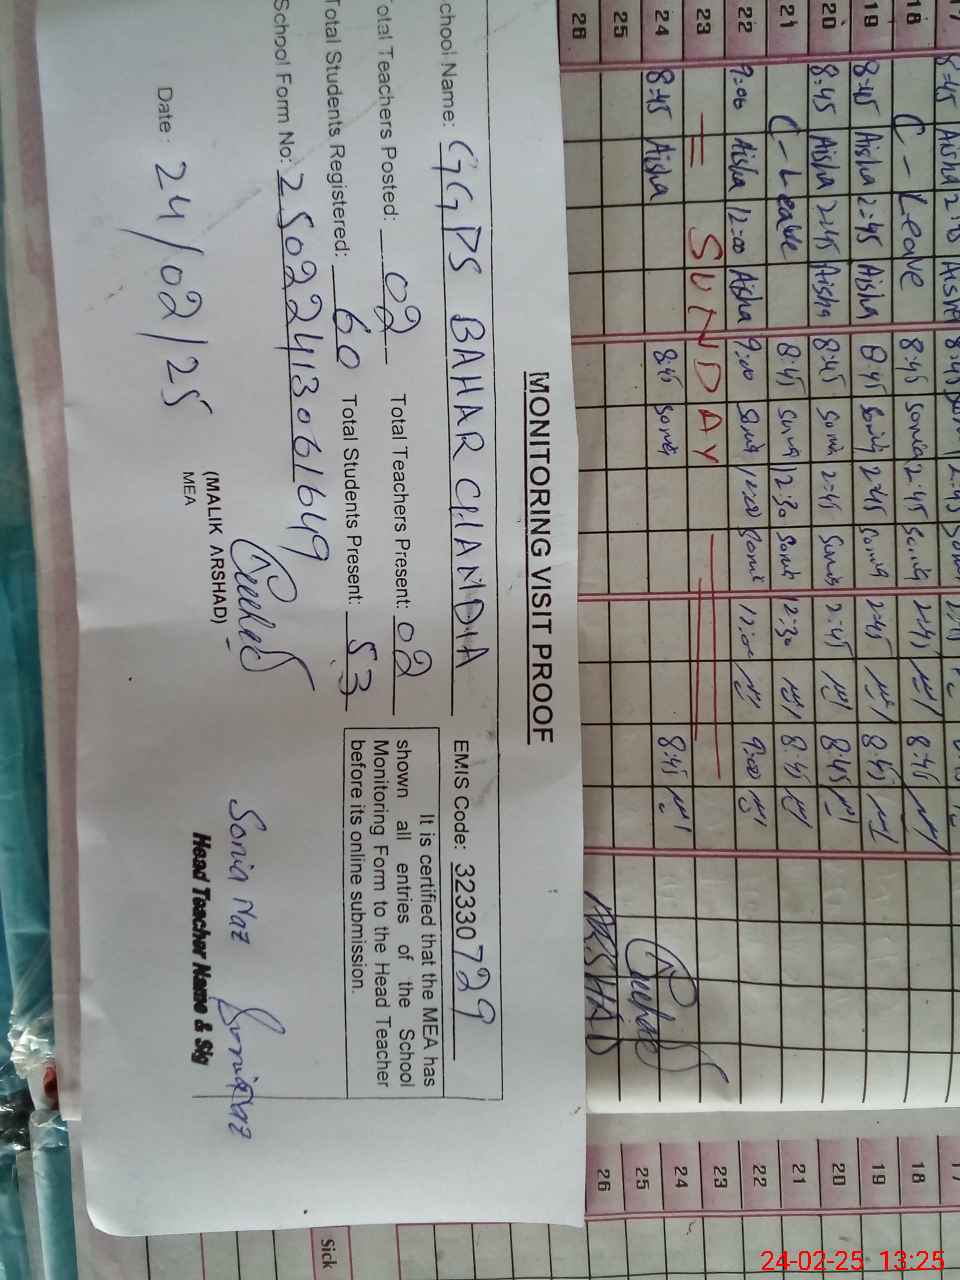 17 8:45 Aisha 2:45 Aisha 8:45
18 C - Leave 8:45 Sonia 2:45 Sonia 2:45 8:45
19 8:45 Aisha 2:45 Aisha 8:45 Sonia 2:45 Sonia 2:45 8:45
20 8:45 Aisha 2:45 Aisha 8:45 Sonia 2:45 Sonia 2:45 8:45
21 C - Leave 8:45 Sonia 12:30 Sonia 12:30 8:45
22 9:00 Aisha 12:00 Aisha 9:00 Sonia 12:00 Sonia 12:00 9:00
23 = SUNDAY
24 8:45 Aisha 8:45 Sonia 8:45
25
26 ARSHAD
MONITORING VISIT PROOF
School Name: GGPS BAHAR CHANDIA EMIS Code: 32330729
Total Teachers Posted: 02 Total Teachers Present: 02
Total Students Registered: 60 Total Students Present: 53
School Form No: 25022413061649
It is certified that the MEA has
shown all entries of the School
Monitoring Form to the Head Teacher
before its online submission.
(MALIK ARSHAD)
MEA
Date: 24/02/25
Sonia Naz Sonia Naz
Head Teacher Name & Sig
17
18
19
20
21
22
23
24
25
26
Sick
24-02-25 13:25